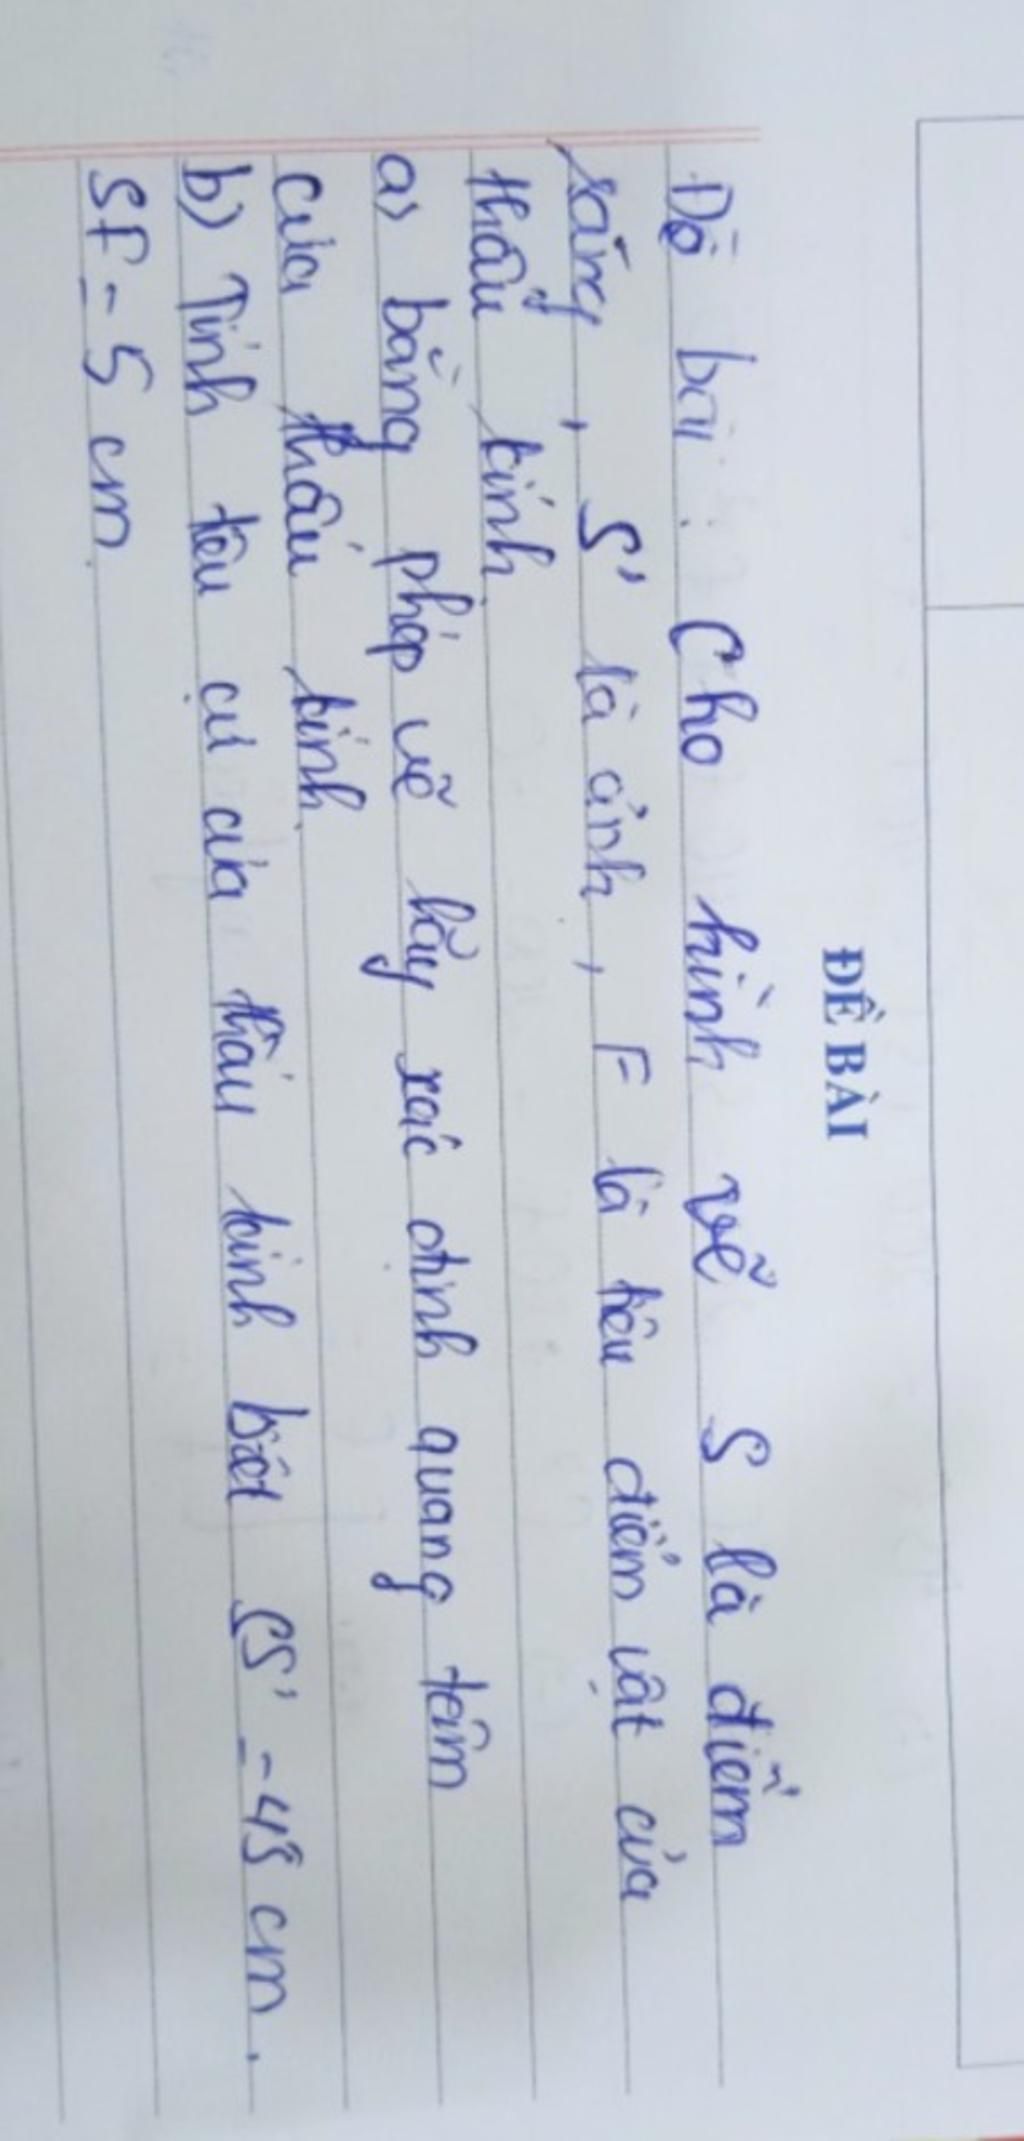 ĐỀ BÀI
Đề bài: Cho hình vẽ S là điểm
sáng, S' là ảnh, F là tiêu điểm vật của
thấu kính.
a) bằng phép vẽ hãy xác định quang tâm
của thấu kính.
b) Tính tiêu cự của thấu kính biết SS' = 45 cm.
SF = 5 cm.